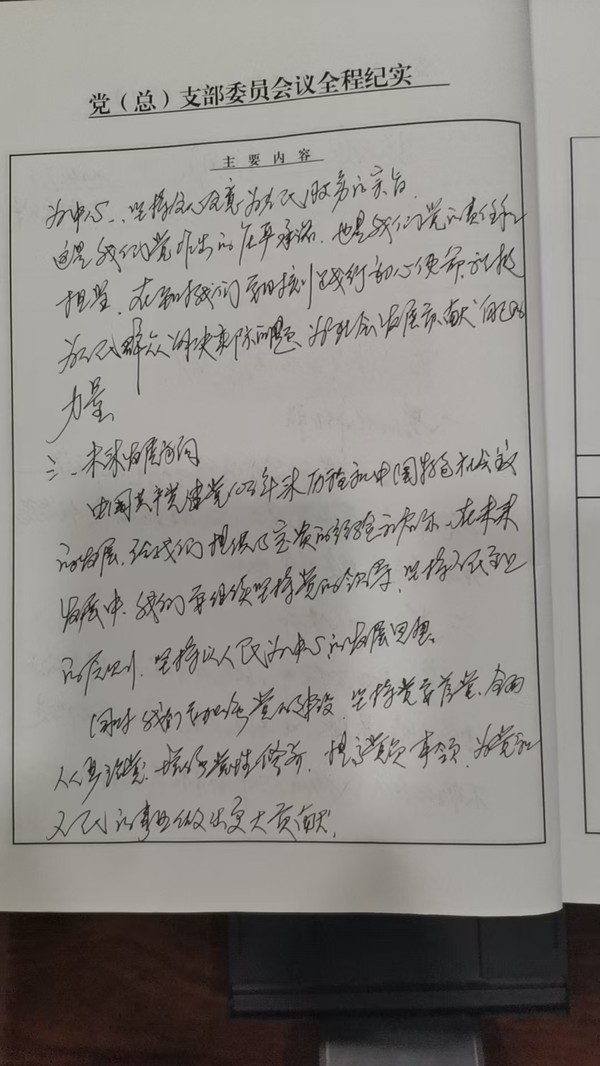 党（总）支部委员会议全程纪实
主要内容
为中心、坚持全心全意为人民服务的宗旨
这是我们党作出的庄严承诺，也是我们党的责任和
担当。在我们要时刻践行初心使命
为人民群众解决实际问题 为社会发展贡献自己的
力量
三、未来发展方向
中国共产党建党103年来历程和中国特色社会主义
的发展，给我们提供了宝贵的经验和启示、在未来
发展中，我们要继续坚持党的领导，坚持人民至上
的原则，坚持以人民为中心的发展思想。
同时我们要加强党的建设，坚持党要管党、全面
从严治党，增强党性修养，提高党员本领，为党和
人民的事业做出更大贡献。